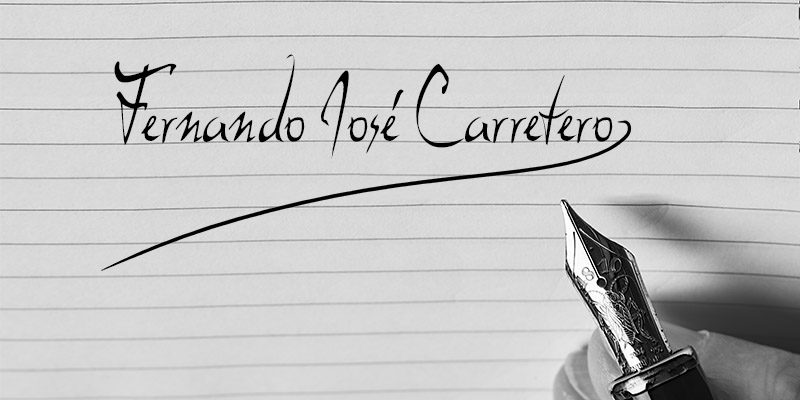 Fernando José Carretero